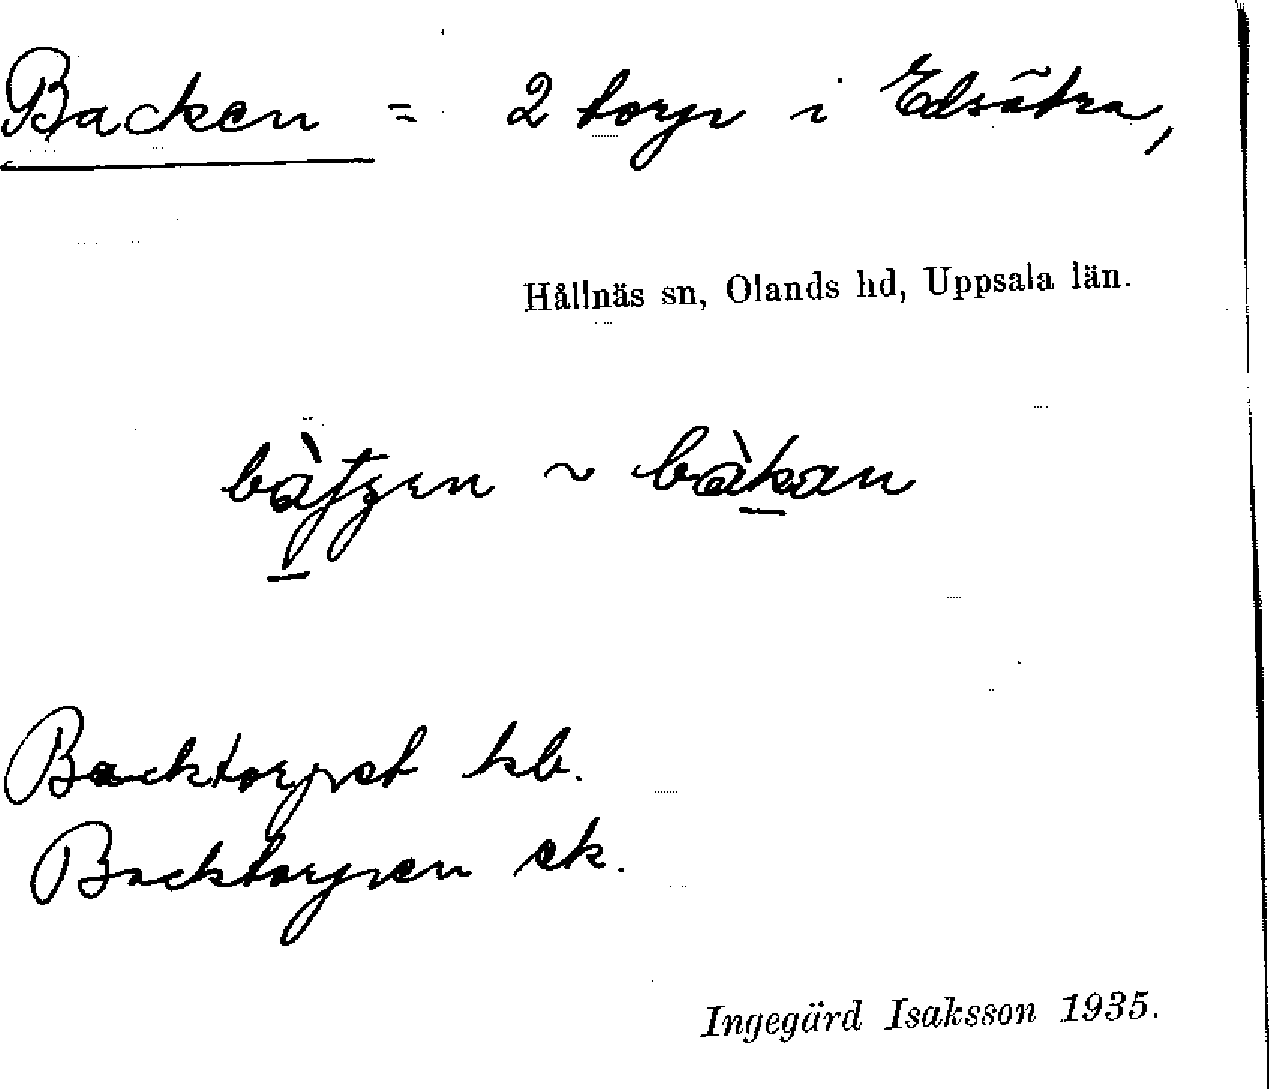 Backen = 2 torp i Edsätra,
Hållnäs sn, Olands hd, Uppsala län.
~ bàkan
Backtorpet hb.
Backtorpen ek.
Ingegärd Isaksson 1935.